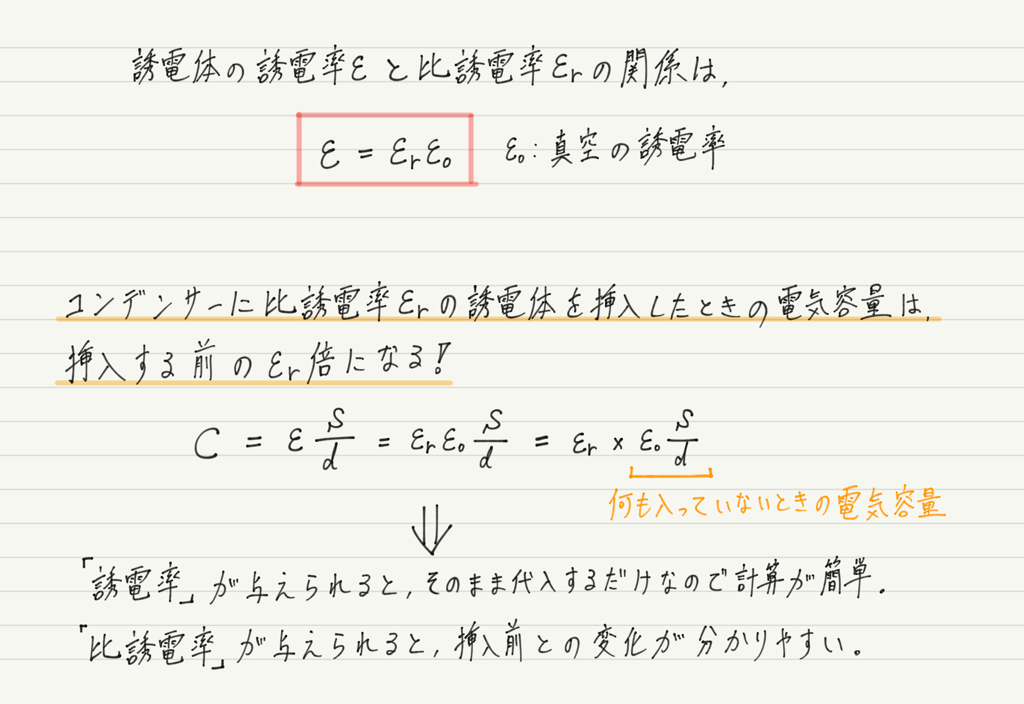 誘電体の誘電率εと比誘電率εrの関係は,
ε = εrε0 ε0:真空の誘電率
コンデンサーに比誘電率εrの誘電体を挿入したときの電気容量は,
挿入する前のεr倍になる!
C = ε S/d = εrε0 S/d = εr × ε0 S/d
何も入っていないときの電気容量
⇓
「誘電率」が与えられると,そのまま代入するだけなので計算が簡単.
「比誘電率」が与えられると,挿入前との変化が分かりやすい。